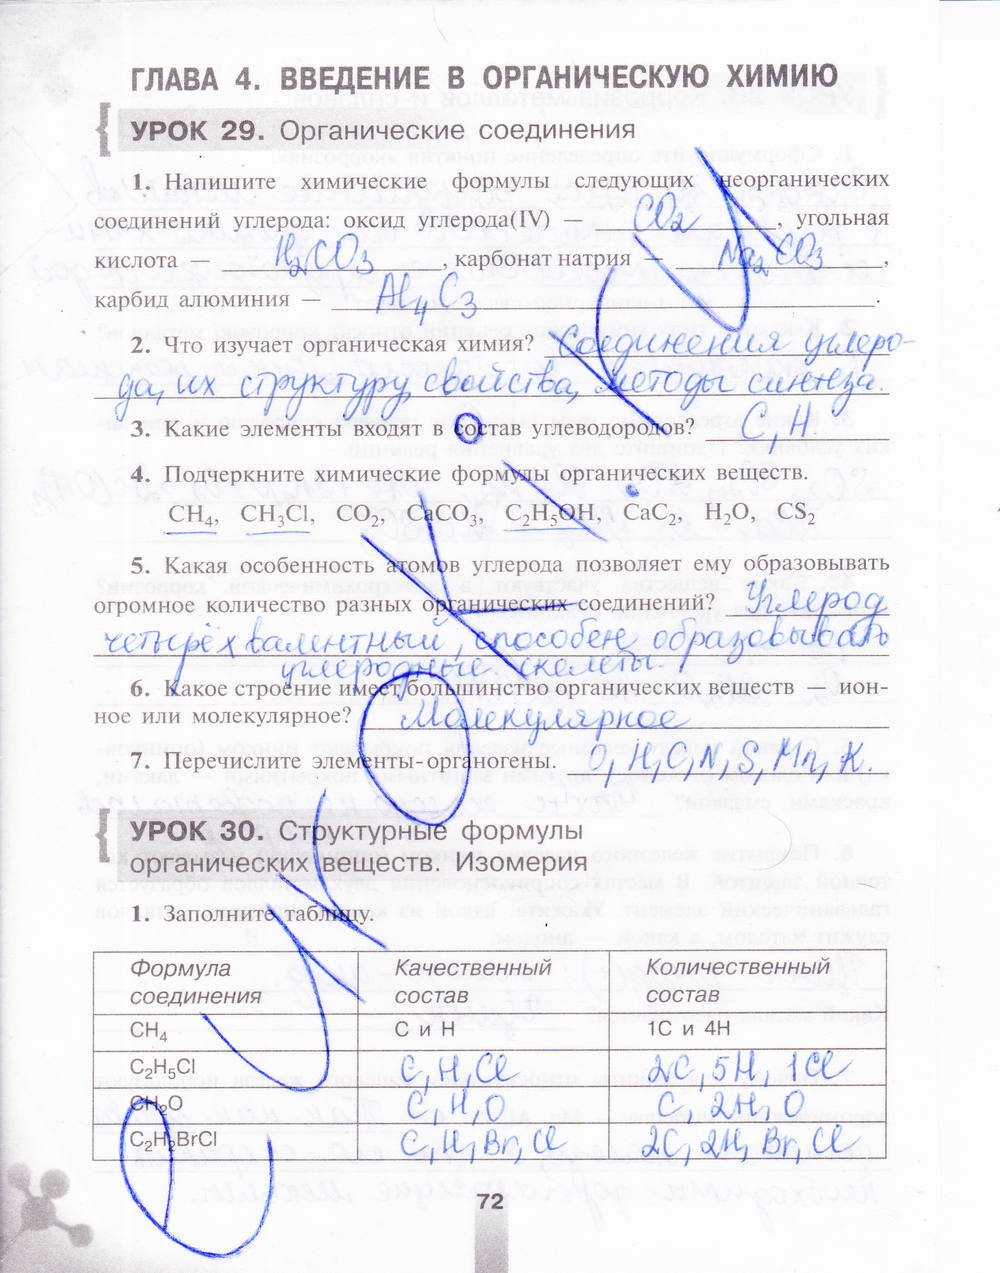 ГЛАВА 4. ВВЕДЕНИЕ В ОРГАНИЧЕСКУЮ ХИМИЮ
УРОК 29. Органические соединения
1. Напишите химические формулы следующих неорганических
соединений углерода: оксид углерода(IV) — CO2, угольная
кислота — H2CO3, карбонат натрия — Na2CO3,
карбид алюминия — Al4C3.
2. Что изучает органическая химия? Соединения углеро-
да, их структуру, свойства, методы синтеза.
3. Какие элементы входят в состав углеводородов? C, H.
4. Подчеркните химические формулы органических веществ.
CH4, CH3Cl, CO2, CaCO3, C2H5OH, CaC2, H2O, CS2
5. Какая особенность атомов углерода позволяет ему образовывать
огромное количество разных органических соединений? Углерод
четырёхвалентный, способен образовывать
углеродные скелеты.
6. Какое строение имеет большинство органических веществ — ион-
ное или молекулярное? Молекулярное
7. Перечислите элементы-органогены. O, H, C, N, S, Mn, K.
УРОК 30. Структурные формулы
органических веществ. Изомерия
1. Заполните таблицу.
Формула соединения Качественный состав Количественный состав
CH4 C и H 1C и 4H
C2H5Cl C, H, Cl 2C, 5H, 1Cl
CH2O C, H, O C, 2H, O
C2H2BrCl C, H, Br, Cl 2C, 2H, Br, Cl
72